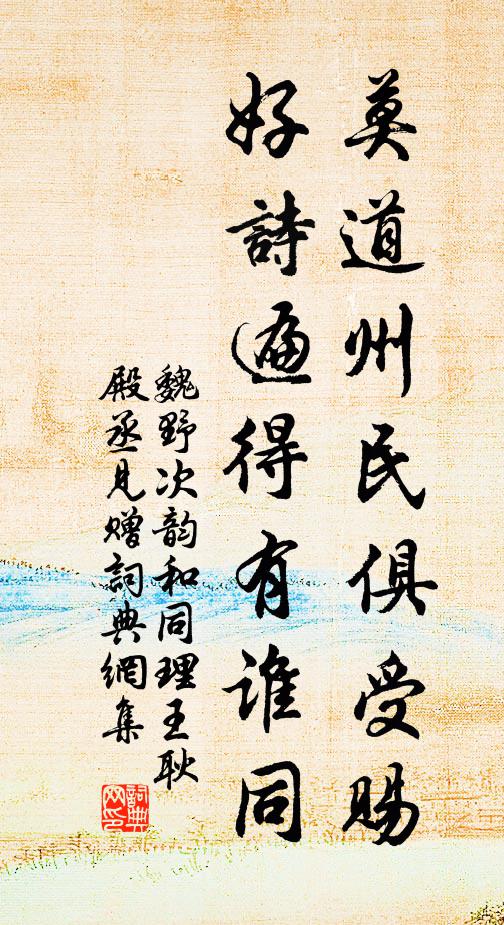 莫道州民俱受賜
好詩遍得有誰同
魏野次韵和同理王耿
殿丞見贈詞典網集
詞典
网印